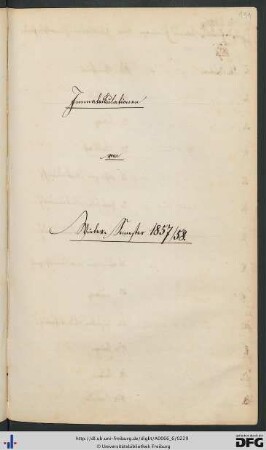 Immatrikulationen
vom
Winter-Semester 1857/58.
http://dl.ub.uni-freiburg.de/diglit/A0066_6/0229
© Universitätsbibliothek Freiburg
gefördert durch die
DFG